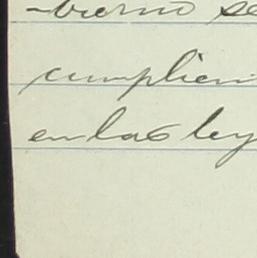 -bierno se
cumplien
en las ley